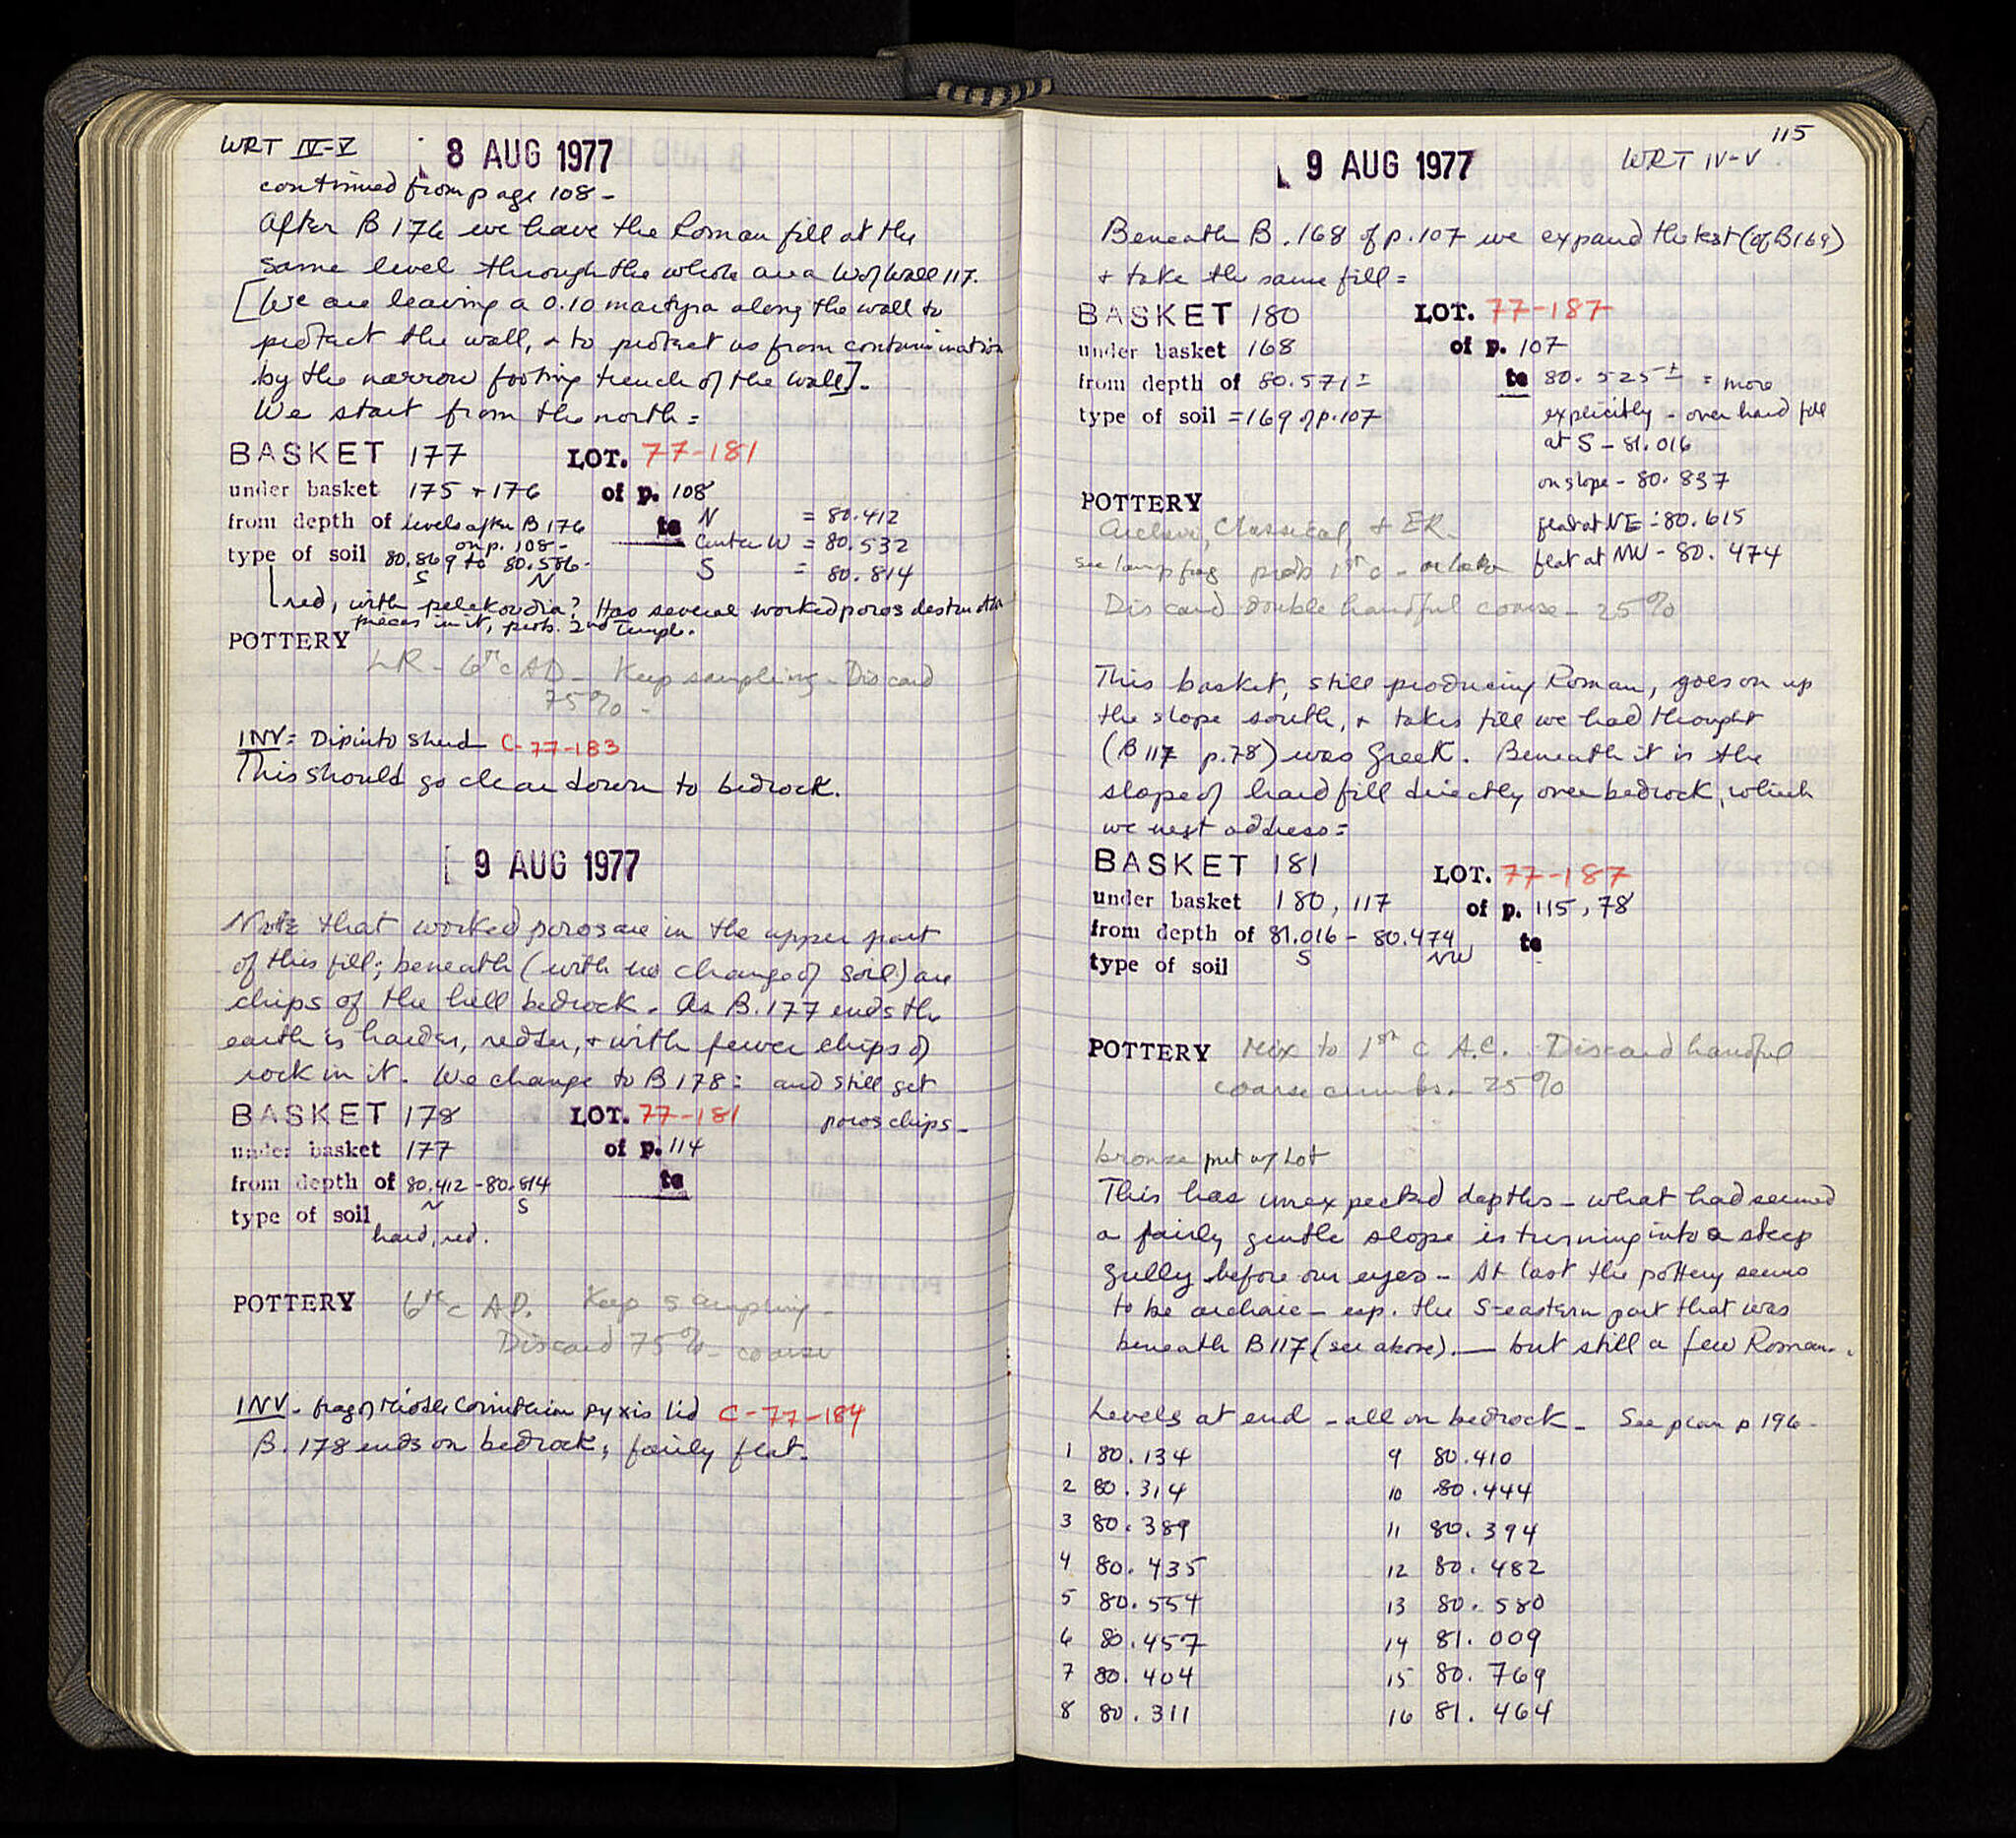 WRT IV-V
8 AUG 1977
continued from page 108 -
After B 176 we have the Roman fill at the
same level through the whole area W of Wall 117.
[We are leaving a 0.10 martyra along the wall to
protect the wall, + to protect us from contamination
by the narrow footing trench of the wall].
We start from the north =
BASKET 177 LOT. 77-181
under basket 175 + 176 of p. 108
from depth of levels after B 176 on p. 108 - to N = 80.412
Center W = 80.532
S = 80.814
type of soil 80.869 to 80.586 -
S N
red, with pelekoudia? Has several worked poros destruction
pieces in it, prob. 2nd Temple.
POTTERY
LR - 6th c AD - Keep sampling - Discard
75% -
INV = Dipinto sherd C-77-183
This should go clean down to bedrock.
9 AUG 1977
Note that worked poros are in the upper part
of this fill; beneath (with no change of soil) are
chips of the hill bedrock. As B.177 ends the
earth is harder, redder, + with fewer chips of
rock in it. We change to B 178: and still get
poros chips -
BASKET 178 LOT. 77-181
under basket 177 of p. 114
from depth of 80.412 - 80.814 to
N S
type of soil
hard, red.
POTTERY 6th c AD. Keep sampling -
Discard 75% - coarse
INV - frag of Middle Corinthian pyxis lid C-77-184
B. 178 ends on bedrock; fairly flat.
115
9 AUG 1977 WRT IV-V
Beneath B. 168 of p. 107 we expand the test (of B169)
+ take the same fill =
BASKET 180 LOT. 77-187
under basket 168 of p. 107
from depth of 80.571 ± to 80.525 ± = more
explicitly - over hard fill
type of soil = 169 of p. 107
at S - 81.016
on slope - 80.837
flat at NE = 80.615
flat at NW - 80.474
POTTERY
Archaic, Classical, + ER.
see lamp frag prob 1st c - or later
Discard double handful coarse - 25%
This basket, still producing Roman, goes on up
the slope south, + takes fill we had thought
(B 117 p. 78) was Greek. Beneath it is the
slope of hard fill directly over bedrock, which
we next address =
BASKET 181 LOT. 77-187
under basket 180, 117 of p. 115, 78
from depth of 81.016 - 80.474 to
S NW
type of soil
POTTERY Mix to 1st c A.C. Discard handful
coarse crumbs. - 25%
bronze put w/ Lot
This has unexpected depths - what had seemed
a fairly gentle slope is turning into a steep
gully before our eyes - At last the pottery seems
to be archaic - esp. the S-eastern part that was
beneath B 117 (see above). — but still a few Roman.
Levels at end - all on bedrock - See plan p 196 -
1 80.134 9 80.410
2 80.314 10 80.444
3 80.389 11 80.394
4 80.435 12 80.482
5 80.554 13 80.580
6 80.457 14 81.009
7 80.404 15 80.769
8 80.311 16 81.464